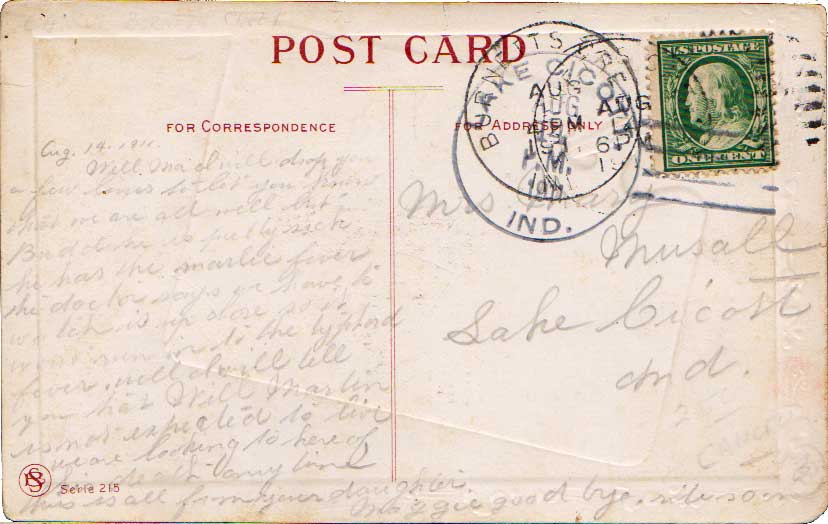 POST CARD
FOR CORRESPONDENCE
FOR ADDRESS ONLY
U.S. POSTAGE
ONE CENT
BURNETTS CREEK
LAKE CICOTT
AUG
AUG
AUG
P.M.
1911
IND.
Aug. 14. 1911.
Well, Ma I will drop you
a few lines to let you know
that we are all well but
he is pretty sick
he has the fever
the doctor says we have to
watch is up close so it
wont run in to the
fever. well I will tell
you that Will Martin
is not expected to live
we are looking to here of
his death any time
this is all from your daughter.
Maggie good bye. write soon
Mrs Mary
Musall
Lake Cicott
Ind.
Serie 215